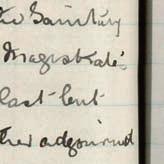 the Sanitary
Magistrate's
last but
her adjourned